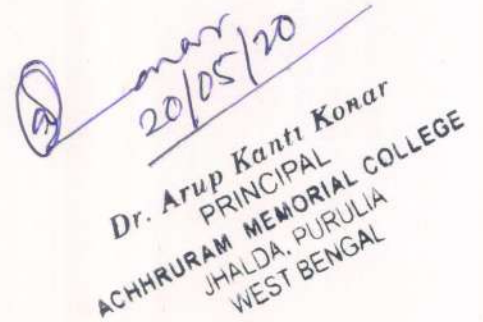 Konar
20/05/20
Dr. Arup Kanti Konar
PRINCIPAL
ACHHRURAM MEMORIAL COLLEGE
JHALDA, PURULIA
WEST BENGAL